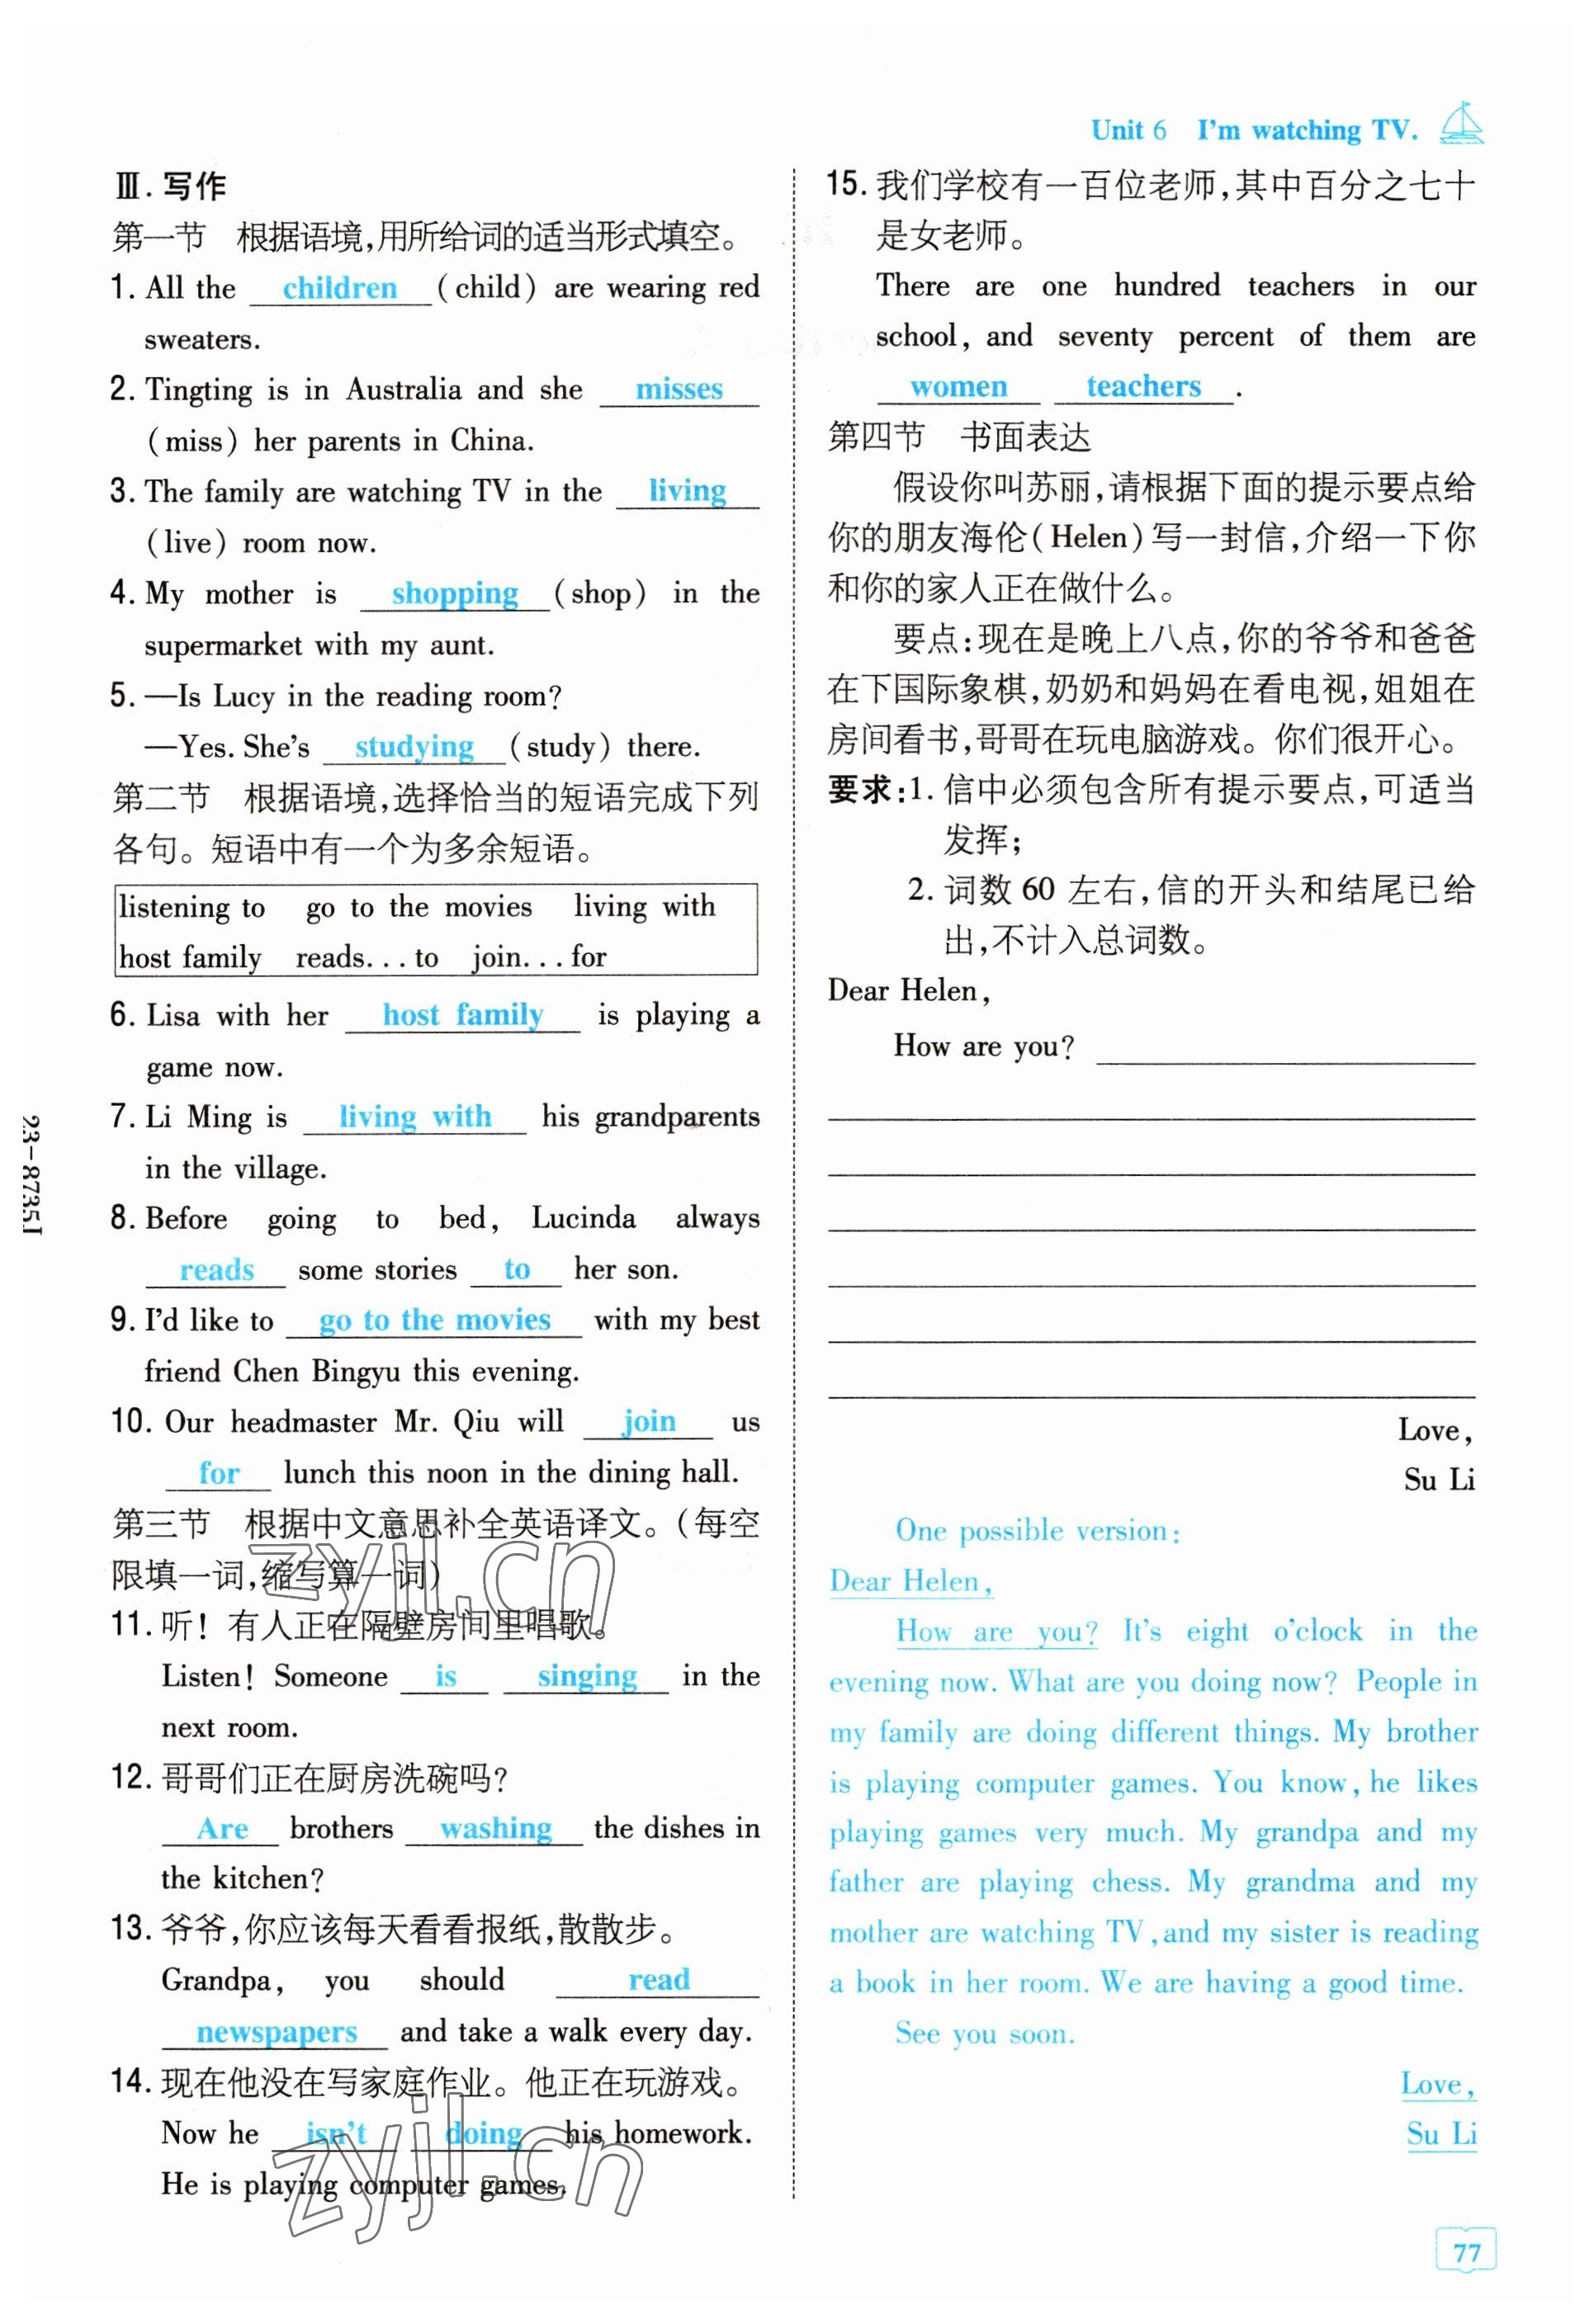 Unit 6 I'm watching TV.
Ⅲ. 写作
第一节 根据语境,用所给词的适当形式填空。
1. All the children (child) are wearing red
sweaters.
2. Tingting is in Australia and she misses
(miss) her parents in China.
3. The family are watching TV in the living
(live) room now.
4. My mother is shopping (shop) in the
supermarket with my aunt.
5. —Is Lucy in the reading room?
—Yes. She's studying (study) there.
第二节 根据语境,选择恰当的短语完成下列
各句。短语中有一个为多余短语。
listening to go to the movies living with
host family reads...to join...for
6. Lisa with her host family is playing a
game now.
7. Li Ming is living with his grandparents
in the village.
8. Before going to bed, Lucinda always
reads some stories to her son.
9. I'd like to go to the movies with my best
friend Chen Bingyu this evening.
10. Our headmaster Mr. Qiu will join us
for lunch this noon in the dining hall.
第三节 根据中文意思补全英语译文。(每空
限填一词,缩写算一词)
11. 听! 有人正在隔壁房间里唱歌。
Listen! Someone is singing in the
next room.
12. 哥哥们正在厨房洗碗吗?
Are brothers washing the dishes in
the kitchen?
13. 爷爷,你应该每天看看报纸,散散步。
Grandpa, you should read
newspapers and take a walk every day.
14. 现在他没在写家庭作业。他正在玩游戏。
Now he isn't doing his homework.
He is playing computer games.
15. 我们学校有一百位老师,其中百分之七十
是女老师。
There are one hundred teachers in our
school, and seventy percent of them are
women teachers.
第四节 书面表达
假设你叫苏丽,请根据下面的提示要点给
你的朋友海伦(Helen)写一封信,介绍一下你
和你的家人正在做什么。
要点:现在是晚上八点,你的爷爷和爸爸
在下国际象棋,奶奶和妈妈在看电视,姐姐在
房间看书,哥哥在玩电脑游戏。你们很开心。
要求:1. 信中必须包含所有提示要点,可适当
发挥;
2. 词数 60 左右,信的开头和结尾已给
出,不计入总词数。
Dear Helen,
How are you?
Love,
Su Li
One possible version:
Dear Helen,
How are you? It's eight o'clock in the
evening now. What are you doing now? People in
my family are doing different things. My brother
is playing computer games. You know, he likes
playing games very much. My grandpa and my
father are playing chess. My grandma and my
mother are watching TV, and my sister is reading
a book in her room. We are having a good time.
See you soon.
Love,
Su Li
77
23-8735I
zyjl.cn
zyjl.cn